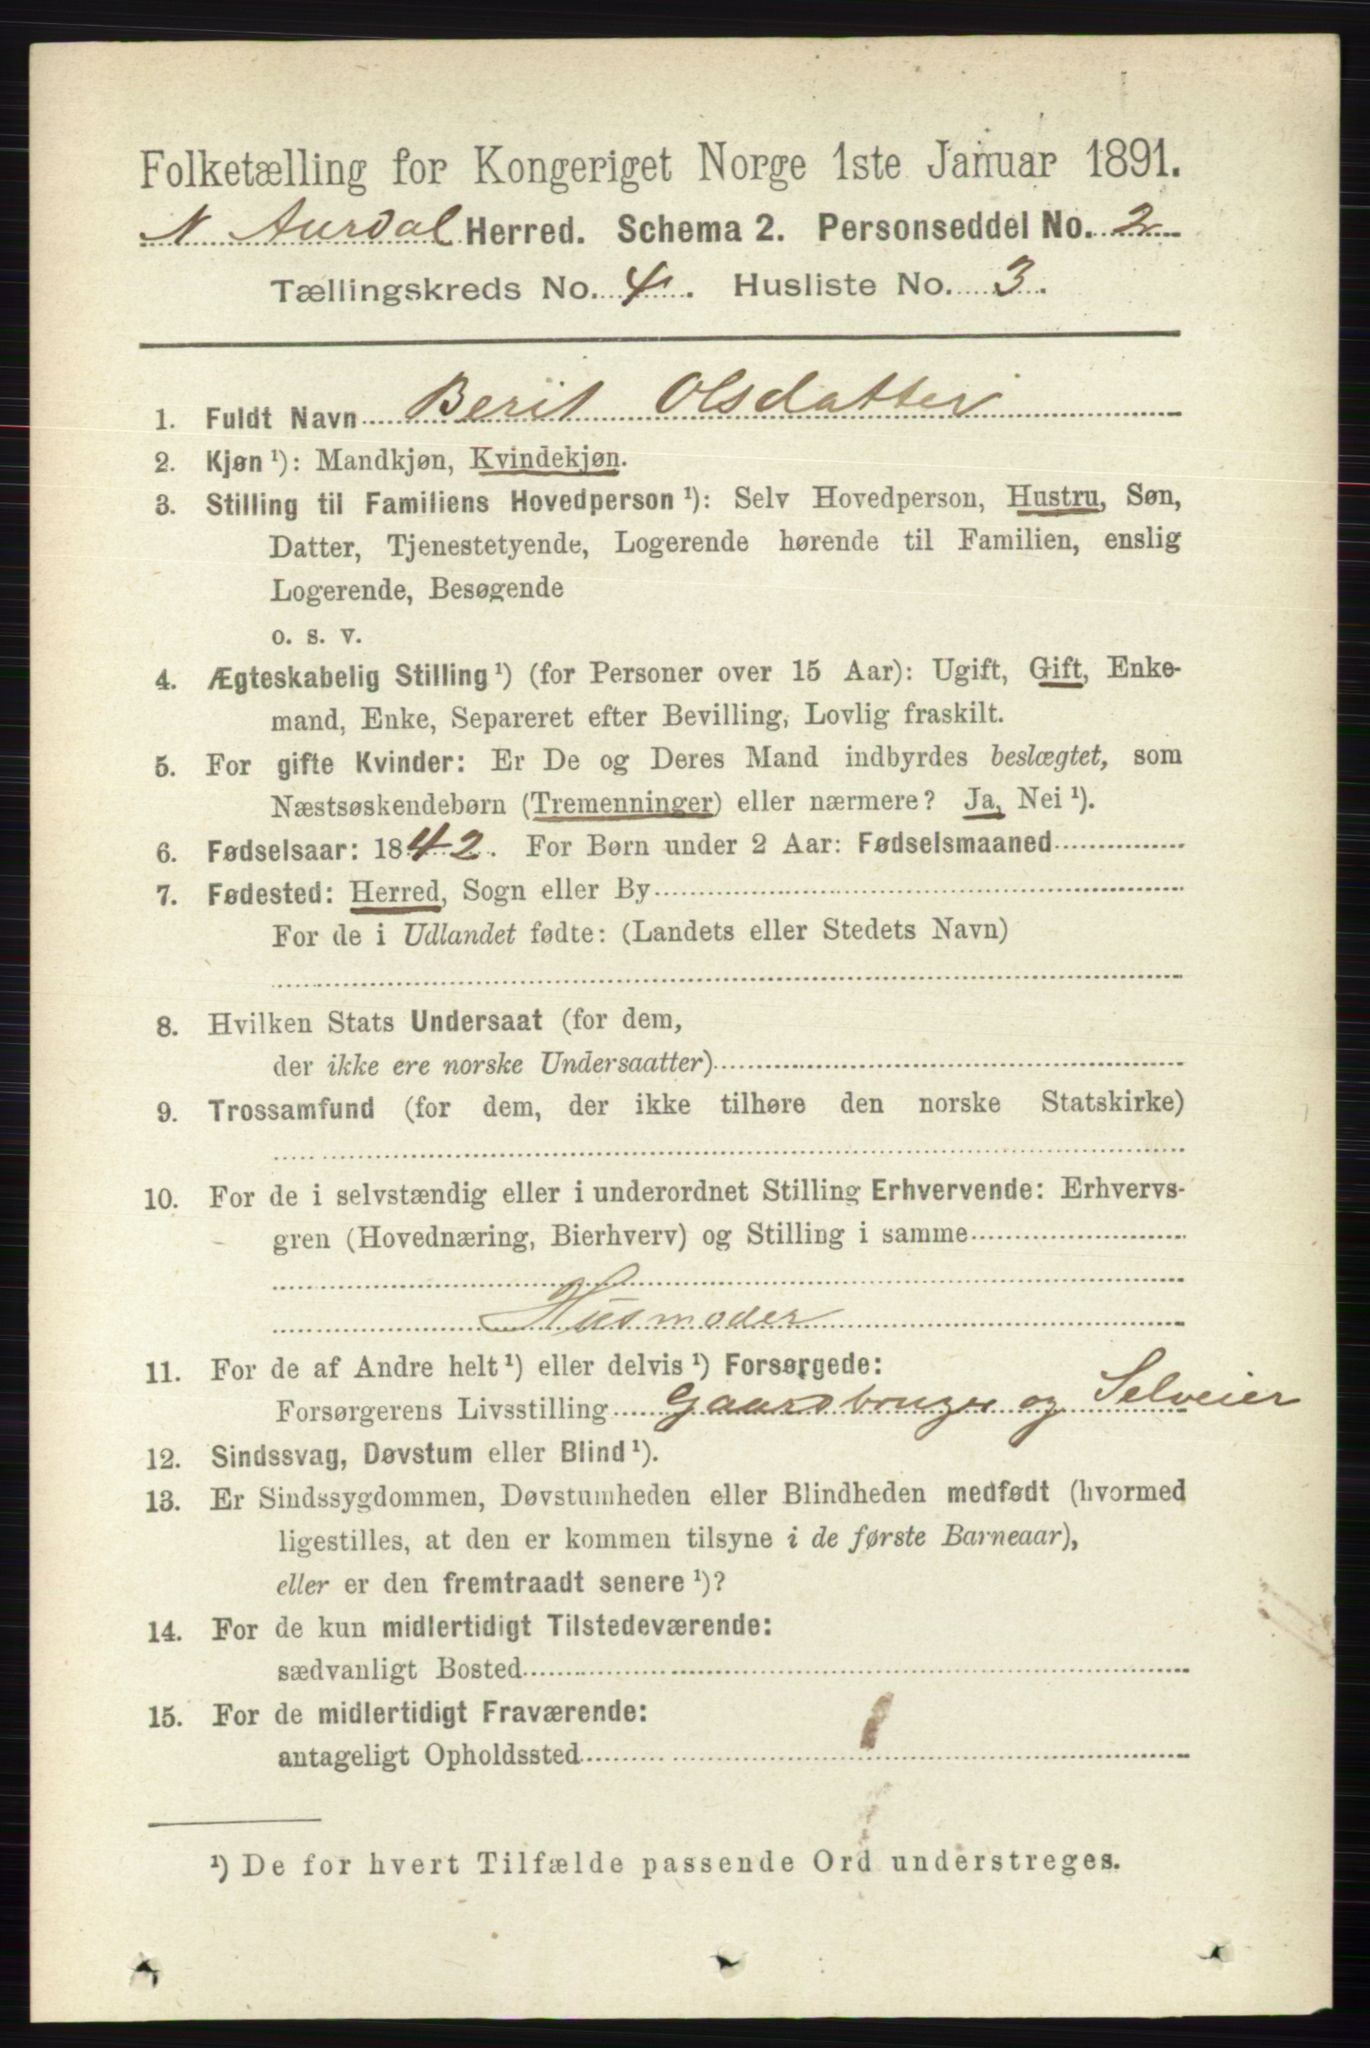 Folketælling for Kongeriget Norge 1ste Januar 1891.
N. Aurdal Herred. Schema 2. Personseddel No. 2
Tællingskreds No. 4. Husliste No. 3.
1. Fuldt Navn Berit Olsdatter
2. Kjøn ¹): Mandkjøn, Kvindekjøn.
3. Stilling til Familiens Hovedperson ¹): Selv Hovedperson, Hustru, Søn,
Datter, Tjenestetyende, Logerende hørende til Familien, enslig
Logerende, Besøgende
o. s. v.
4. Ægteskabelig Stilling ¹) (for Personer over 15 Aar): Ugift, Gift, Enke-
mand, Enke, Separeret efter Bevilling, Lovlig fraskilt.
5. For gifte Kvinder: Er De og Deres Mand indbyrdes beslægtet, som
Næstsøskendebørn (Tremenninger) eller nærmere? Ja, Nei ¹).
6. Fødselsaar: 1842. For Børn under 2 Aar: Fødselsmaaned
7. Fødested: Herred, Sogn eller By
For de i Udlandet fødte: (Landets eller Stedets Navn)
8. Hvilken Stats Undersaat (for dem,
der ikke ere norske Undersaatter)
9. Trossamfund (for dem, der ikke tilhøre den norske Statskirke)
10. For de i selvstændig eller i underordnet Stilling Erhvervende: Erhvervs-
gren (Hovednæring, Bierhverv) og Stilling i samme
Husmoder
11. For de af Andre helt ¹) eller delvis ¹) Forsørgede:
Forsørgerens Livsstilling Gaardbruger og Selveier
12. Sindssvag, Døvstum eller Blind ¹).
13. Er Sindssygdommen, Døvstumheden eller Blindheden medfødt (hvormed
ligestilles, at den er kommen tilsyne i de første Barneaar),
eller er den fremtraadt senere ¹)?
14. For de kun midlertidigt Tilstedeværende:
sædvanligt Bosted
15. For de midlertidigt Fraværende:
antageligt Opholdssted
¹) De for hvert Tilfælde passende Ord understreges.